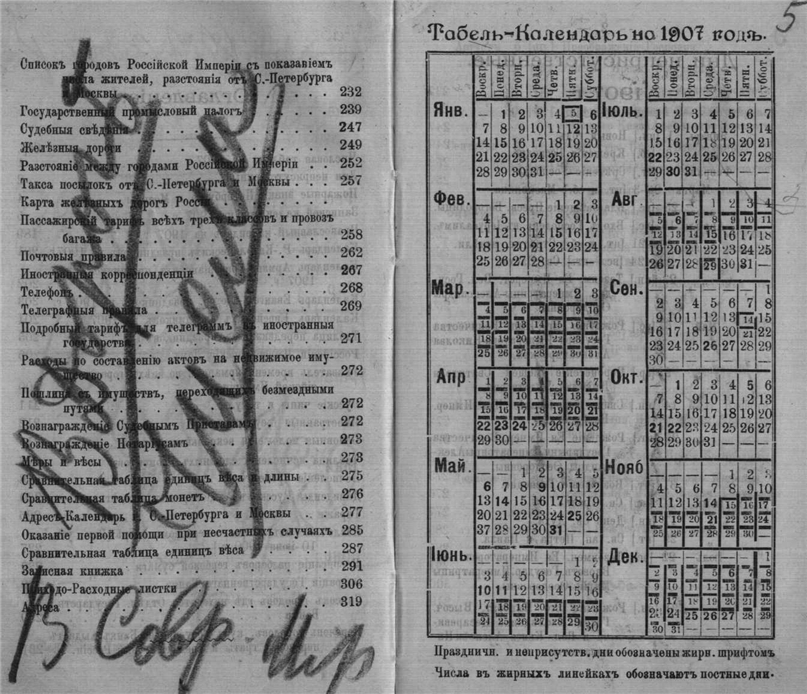 Списокъ городовъ Россійской Имперіи съ показаніемъ
числа жителей, разстоянія отъ С.-Петербурга
Москвы 232
Государственный промысловый налогъ 239
Судебныя свѣдѣнія 247
Желѣзныя дороги 249
Разстояніе между городами Россійской Имперіи 252
Такса посылокъ отъ С.-Петербурга и Москвы 257
Карта желѣзныхъ дорогъ Россіи
Пассажирскій тарифъ всѣхъ трехъ классовъ и провозъ
багажа 258
Почтовыя правила 262
Иностранная корреспонденція 267
Телефонъ 268
Телеграфныя правила 269
Подробный тарифъ для телеграммъ въ иностранныя
государства 271
Расходы по составленію актовъ на недвижимое иму-
щество 272
Пошлина съ имуществъ, переходящихъ безмездными
путями 272
Вознагражденіе Судебнымъ Приставамъ 272
Вознагражденіе Нотаріусамъ 273
Мѣры и вѣсы 273
Сравнительная таблица единицъ вѣса и длины 275
Сравнительная таблица монетъ 276
Адресъ-Календарь С.-Петербурга и Москвы 277
Оказаніе первой помощи при несчастныхъ случаяхъ 285
Сравнительная таблица единицъ вѣса 287
Записная книжка 291
Приходо-Расходные листки 306
Адреса 319
В Совр. Мір
5
Табель-Календарь на 1907 годъ.
Воскр. Понед. Вторн. Среда. Четв. Пятн. Суббот. Воскр. Понед. Вторн. Среда. Четв. Пятн. Суббот.
Янв. — 1 2 3 4 5 6
7 8 9 10 11 12 13
14 15 16 17 18 19 20
21 22 23 24 25 26 27
28 29 30 31 — — —
Фев. — — — — 1 2 3
4 5 6 7 8 9 10
11 12 13 14 15 16 17
18 19 20 21 22 23 24
25 26 27 28 — — —
Мар. — — — — 1 2 3
4 5 6 7 8 9 10
11 12 13 14 15 16 17
18 19 20 21 22 23 24
25 26 27 28 29 30 31
Апр 1 2 3 4 5 6 7
8 9 10 11 12 13 14
15 16 17 18 19 20 21
22 23 24 25 26 27 28
29 30 — — — — —
Май. — — 1 2 3 4 5
6 7 8 9 10 11 12
13 14 15 16 17 18 19
20 21 22 23 24 25 26
37 28 29 30 31 — —
Іюнь. — — — — — 1 2
3 4 5 6 7 8 9
10 11 12 13 14 15 16
17 18 19 20 21 22 23
24 25 26 27 28 29 30
Іюль. 1 2 3 4 5 6 7
8 9 10 11 12 13 14
15 16 17 18 19 20 21
22 23 24 25 26 27 28
29 30 31 — — — —
Авг — — — 1 2 3 4
5 6 7 8 9 10 11
12 13 14 15 16 17 18
19 20 21 22 23 24 25
26 27 28 29 30 31 —
Сен. — — — — — — 1
2 3 4 5 6 7 8
9 10 11 12 13 14 15
16 17 18 19 20 21 22
23 24 25 26 27 28 29
30 — — — — — —
Окт. — 1 2 3 4 5 6
7 8 9 10 11 12 13
14 15 16 17 18 19 20
21 22 23 24 25 26 27
28 29 30 31 — — —
Нояб — — — — 1 2 3
4 5 6 7 8 9 10
11 12 13 14 15 16 17
18 19 20 21 22 23 24
25 26 27 28 29 30 —
Дек. — — — — — — 1
2 3 4 5 6 7 8
9 10 11 12 13 14 15
16 17 18 19 20 21 22
23 24 25 26 27 28 29
30 31 — — — — —
Праздничн. и неприсутств. дни обозначены жирн. шрифтомъ
Числа въ жирныхъ линейкахъ обозначаютъ постные дни.